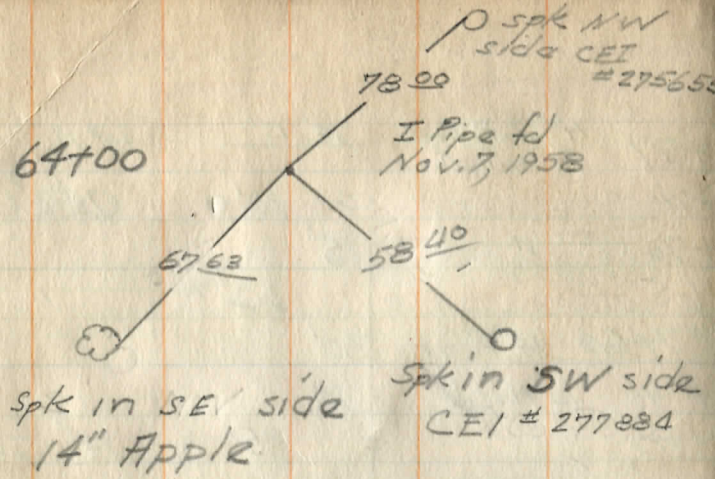 spk NW
side CEI
#275655
78 00
I Pipe fd
Nov. 7, 1958
64+00
67 63
58 40
Spk in S.E. side
14" Apple
Spk in SW side
CEI # 277884